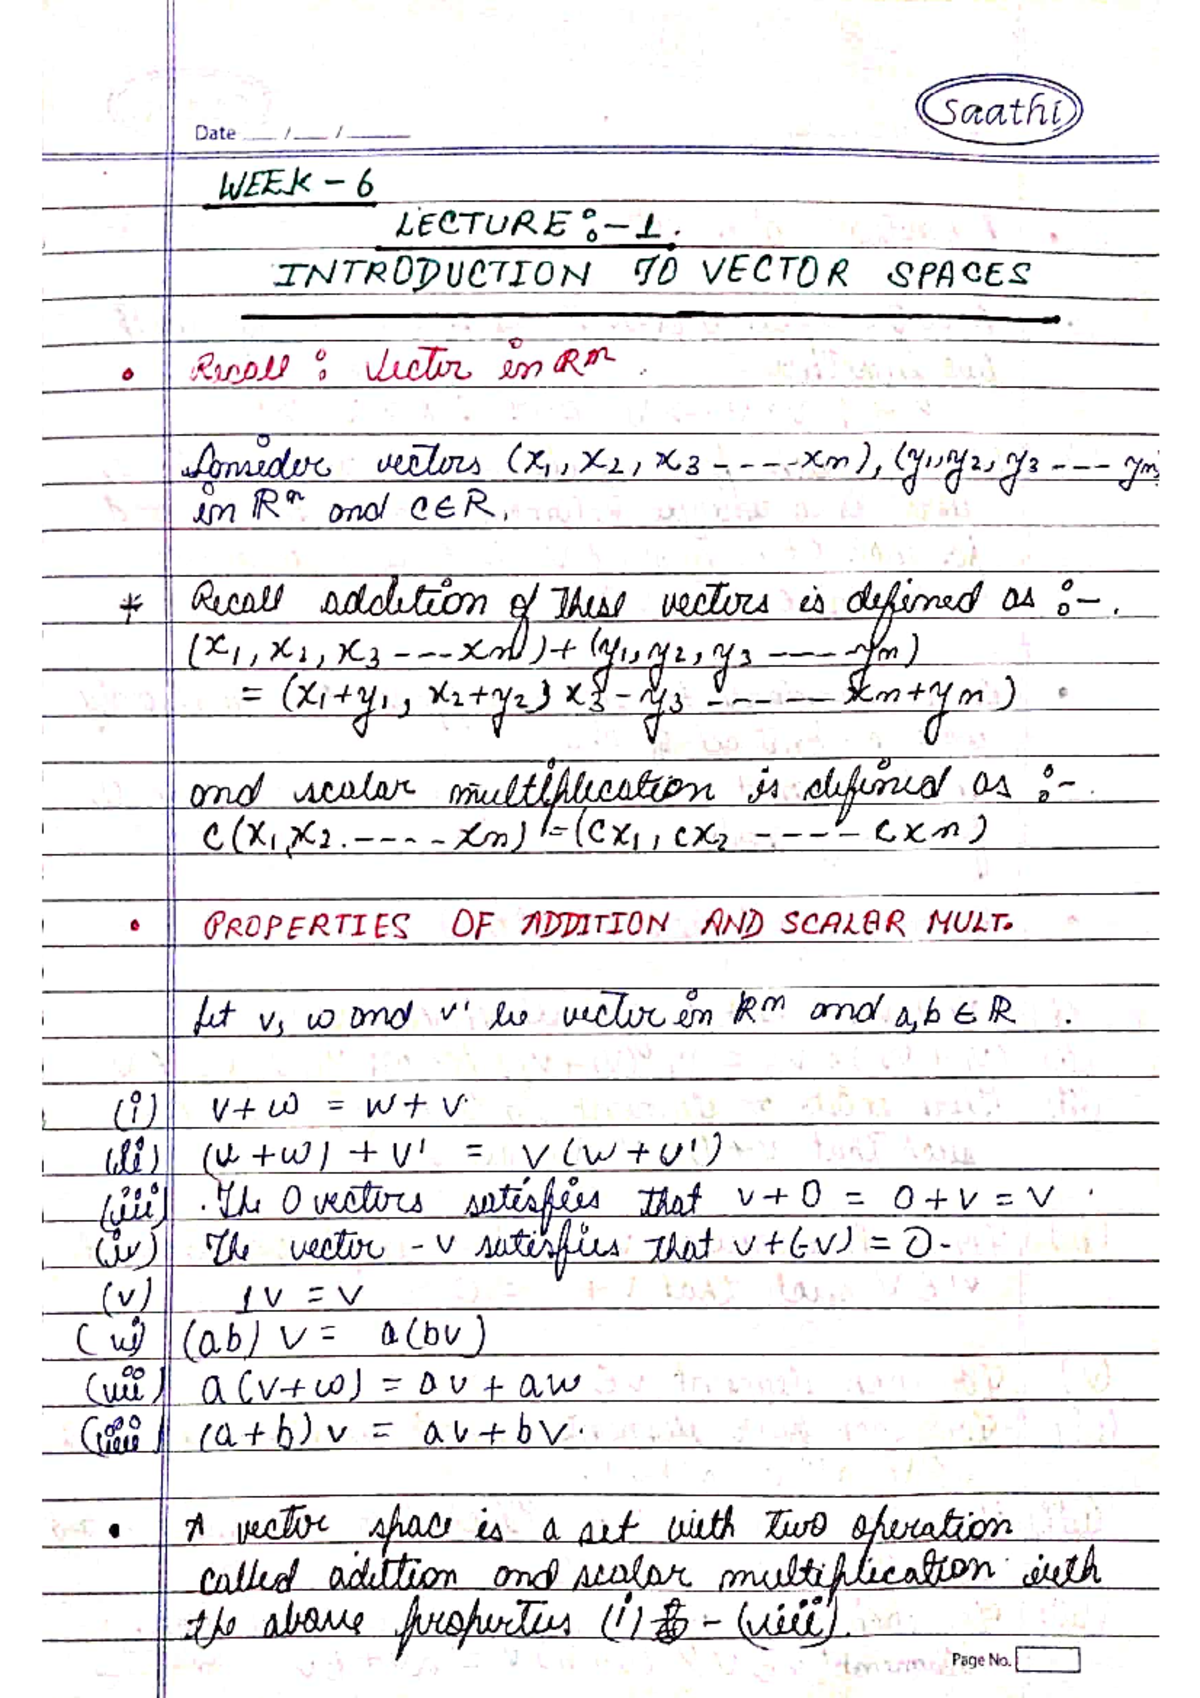 Saathi
Date ___ / ___ / ______
WEEK - 6
LECTURE :- 1.
INTRODUCTION TO VECTOR SPACES
• Recall : Vector in Rⁿ .
Consider vectors (x₁, x₂, x₃ ----- xn), (y₁, y₂, y₃ --- yn)
in Rⁿ and C∈R.
* Recall addition of these vectors is defined as :-.
(x₁, x₂, x₃ --- xn) + (y₁, y₂, y₃ ---- yn)
= (x₁+y₁, x₂+y₂, x₃-y₃ ------ xn+yn)
and scalar multiplication is defined as :-.
C(x₁, x₂.----- xn) = (Cx₁, cx₂ ----- cxn)
• PROPERTIES OF ADDITION AND SCALAR MULT.
Let v, w and v' be vector in Rⁿ and a,b ∈ R .
(i) v+w = w+v.
(ii) (v+w) + v' = v(w+v')
(iii) . The 0 vectors satisfies that v+0 = 0+v = v .
(iv) The vector -v satisfies that v+(-v) = 0.
(v) 1v = v
(vi) (ab) v = a(bv)
(vii) a(v+w) = av + aw
(viii) (a+b) v = av+bv.
• A vector space is a set with two operation
called adittion and scalar multiplication with
the above properties (i) - (viii).
Page No.